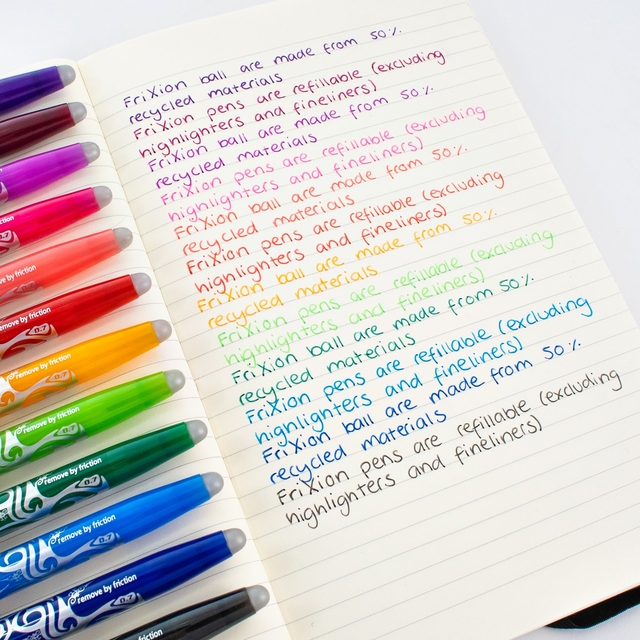 FriXion ball are made from 50%
recycled materials
FriXion pens are refillable (excluding
highlighters and fineliners)
FriXion ball are made from 50%
recycled materials
FriXion pens are refillable (excluding
highlighters and fineliners)
FriXion ball are made from 50%
recycled materials
FriXion pens are refillable (excluding
highlighters and fineliners)
FriXion ball are made from 50%
recycled materials
FriXion pens are refillable (excluding
highlighters and fineliners)
FriXion ball are made from 50%
recycled materials
FriXion pens are refillable (excluding
highlighters and fineliners)
FriXion ball are made from 50%
recycled materials
FriXion pens are refillable (excluding
highlighters and fineliners)
friction
remove by friction
remove by friction
0.7
remove by friction
0.7
remove by friction
0.7
remove by friction
0.7
remove by friction
0.7
remove by friction
0.7
remove by friction